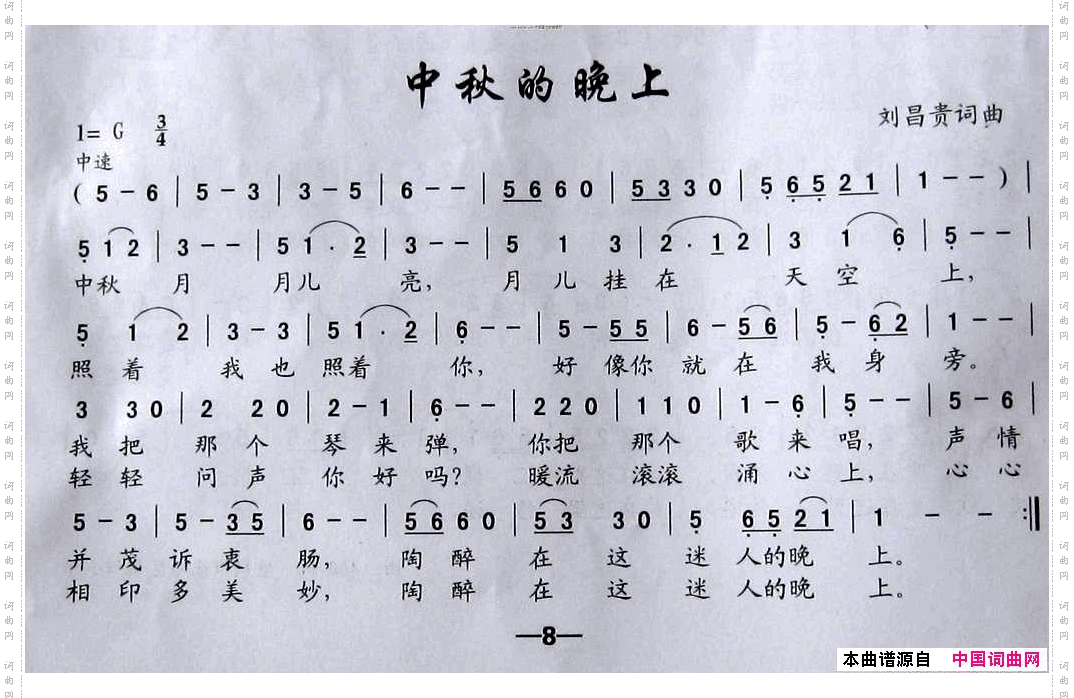 中秋的晚上
刘昌贵词曲
1= G 3/4
中速
( 5 − 6 | 5 − 3 | 3 − 5 | 6 − − | 5 6 6 0 | 5 3 3 0 | 5 6 5 2 1 | 1 − − ) |
5 1 2 | 3 − − | 5 1 · 2 | 3 − − | 5 1 3 | 2 · 1 2 | 3 1 6 | 5 − − |
中秋 月 月儿 亮, 月 儿 挂 在 天 空 上,
5 1 2 | 3 − 3 | 5 1 · 2 | 6 − − | 5 − 5 5 | 6 − 5 6 | 5 − 6 2 | 1 − − |
照 着 我 也 照着 你, 好 像你 就 在 我 身 旁。
3 3 0 | 2 2 0 | 2 − 1 | 6 − − | 2 2 0 | 1 1 0 | 1 − 6 | 5 − − | 5 − 6 |
我 把 那 个 琴 来 弹, 你把 那个 歌 来 唱, 声 情
轻 轻 问 声 你 好 吗? 暖流 滚滚 涌 心 上, 心 心
5 − 3 | 5 − 3 5 | 6 − − | 5 6 6 0 | 5 3 3 0 | 5 6 5 2 1 | 1 − − :‖
并 茂 诉 衷 肠, 陶 醉 在 这 迷 人的晚 上。
相 印 多 美 妙, 陶 醉 在 这 迷 人的晚 上。
—8—
本曲谱源自 中国词曲网